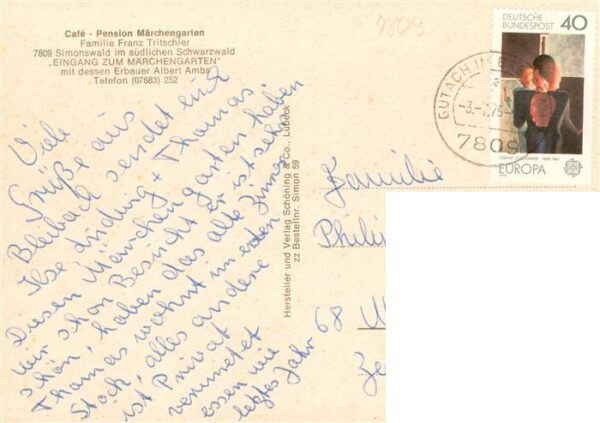 Café - Pension Märchengarten
Familie Franz Tritschler
7809 Simonswald im südlichen Schwarzwald
„EINGANG ZUM MÄRCHENGARTEN"
mit dessen Erbauer Albert Ambs
Telefon (07683) 252
Viele
Grüße aus
Bleibach sendet euch
Ilse Ludwig + Thomas
Diesen Märchengarten haben
wir schon Besucht Er ist sehr
schön, haben das alte Zimmer
Thomas wohnt im ersten
Stock, alles andere
ist Privat
vermietet
essen wie
letztes Jahr
Hersteller und Verlag Schöning & Co., Lübeck
zz Bestellnr. Simon 59
7809
DEUTSCHE
BUNDESPOST
40
EUROPA
GUTACH IM
7809
Familie
68